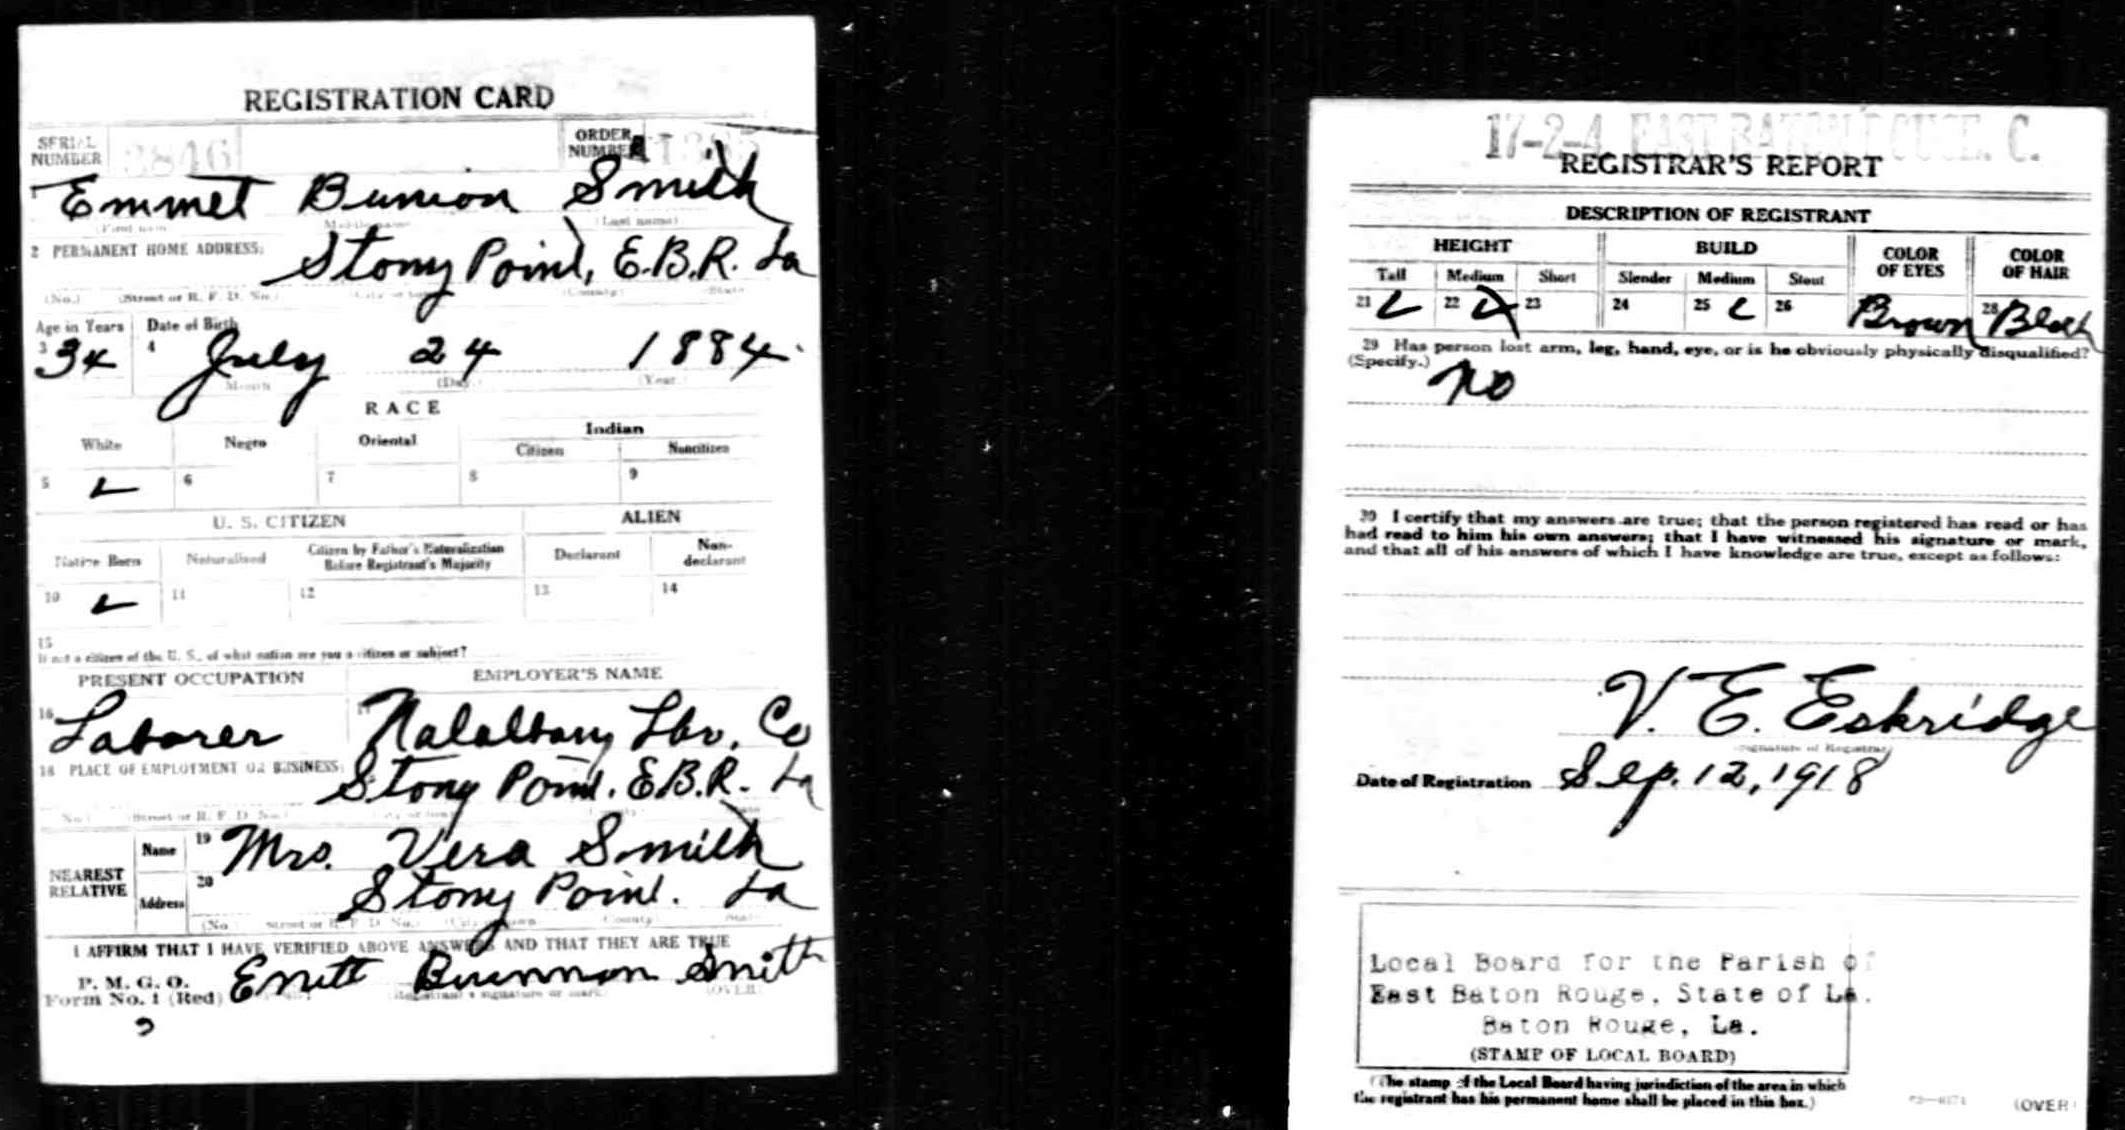 REGISTRATION CARD
SERIAL NUMBER 3846 ORDER NUMBER
Emmet Bunion Smith
(First name) Middle name (Last name)
2 PERMANENT HOME ADDRESS:
Stony Point, E.B.R. La
(No.) (Street or R. F. D. No.) (City or town) (County) (State)
Age in Years Date of Birth
3 34 4 July 24 1884
Month (Day) (Year)
RACE
White Negro Oriental Indian
Citizen Noncitizen
5 6 7 8 9
U. S. CITIZEN ALIEN
Native Born Naturalized Citizen by Father's Naturalization Before Registrant's Majority Declarant Non-declarant
10 11 12 13 14
15
If not a citizen of the U. S., of what nation are you a citizen or subject?
PRESENT OCCUPATION EMPLOYER'S NAME
16 Laborer 17 Natalbany Lbr. Co
18 PLACE OF EMPLOYMENT OR BUSINESS:
Stony Point. E.B.R. La
(No.) (Street or R. F. D. No.) (City or town) (County) State
NEAREST RELATIVE Name 19 Mrs. Vera Smith
Address 20 Stony Point. La
(No. Street or R. F. D. No.) (City or town County) State
I AFFIRM THAT I HAVE VERIFIED ABOVE ANSWERS AND THAT THEY ARE TRUE
P. M. G. O.
Form No. 1 (Red) Emitt Bunnion Smith
(Registrant's signature or mark) (OVER)
17-2-4 EAST BATON ROUGE. C.
REGISTRAR'S REPORT
DESCRIPTION OF REGISTRANT
HEIGHT BUILD COLOR OF EYES COLOR OF HAIR
Tall Medium Short Slender Medium Stout
21 22 23 24 25 26 Brown 28 Black
29 Has person lost arm, leg, hand, eye, or is he obviously physically disqualified?
(Specify.) no
30 I certify that my answers are true; that the person registered has read or has
had read to him his own answers; that I have witnessed his signature or mark,
and that all of his answers of which I have knowledge are true, except as follows:
V. E. Eskridge
(Signature of Registrar)
Date of Registration Sep. 12, 1918
Local Board for the Parish of
East Baton Rouge, State of La.
Baton Rouge, La.
(STAMP OF LOCAL BOARD)
(The stamp of the Local Board having jurisdiction of the area in which
the registrant has his permanent home shall be placed in this box.)
(OVER)